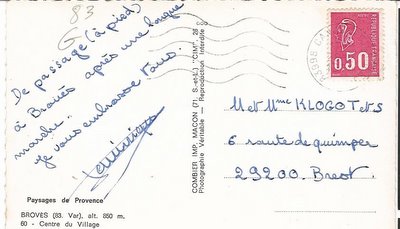 83
G
De passage (à pied)
à Brovès après une longue
marche.
je vous embrasse tous.
Paysages de Provence
BROVES (83. Var), alt. 850 m.
60 - Centre du Village
COMBIER IMP. MACON (71) S.-et-L.) "CIM"
Photographie Véritable — Reproduction Interdite
REPUBLIQUE FRANÇAISE
0,50
M et Mme KLOGOT et S
6 route de quimper
29200 Brest